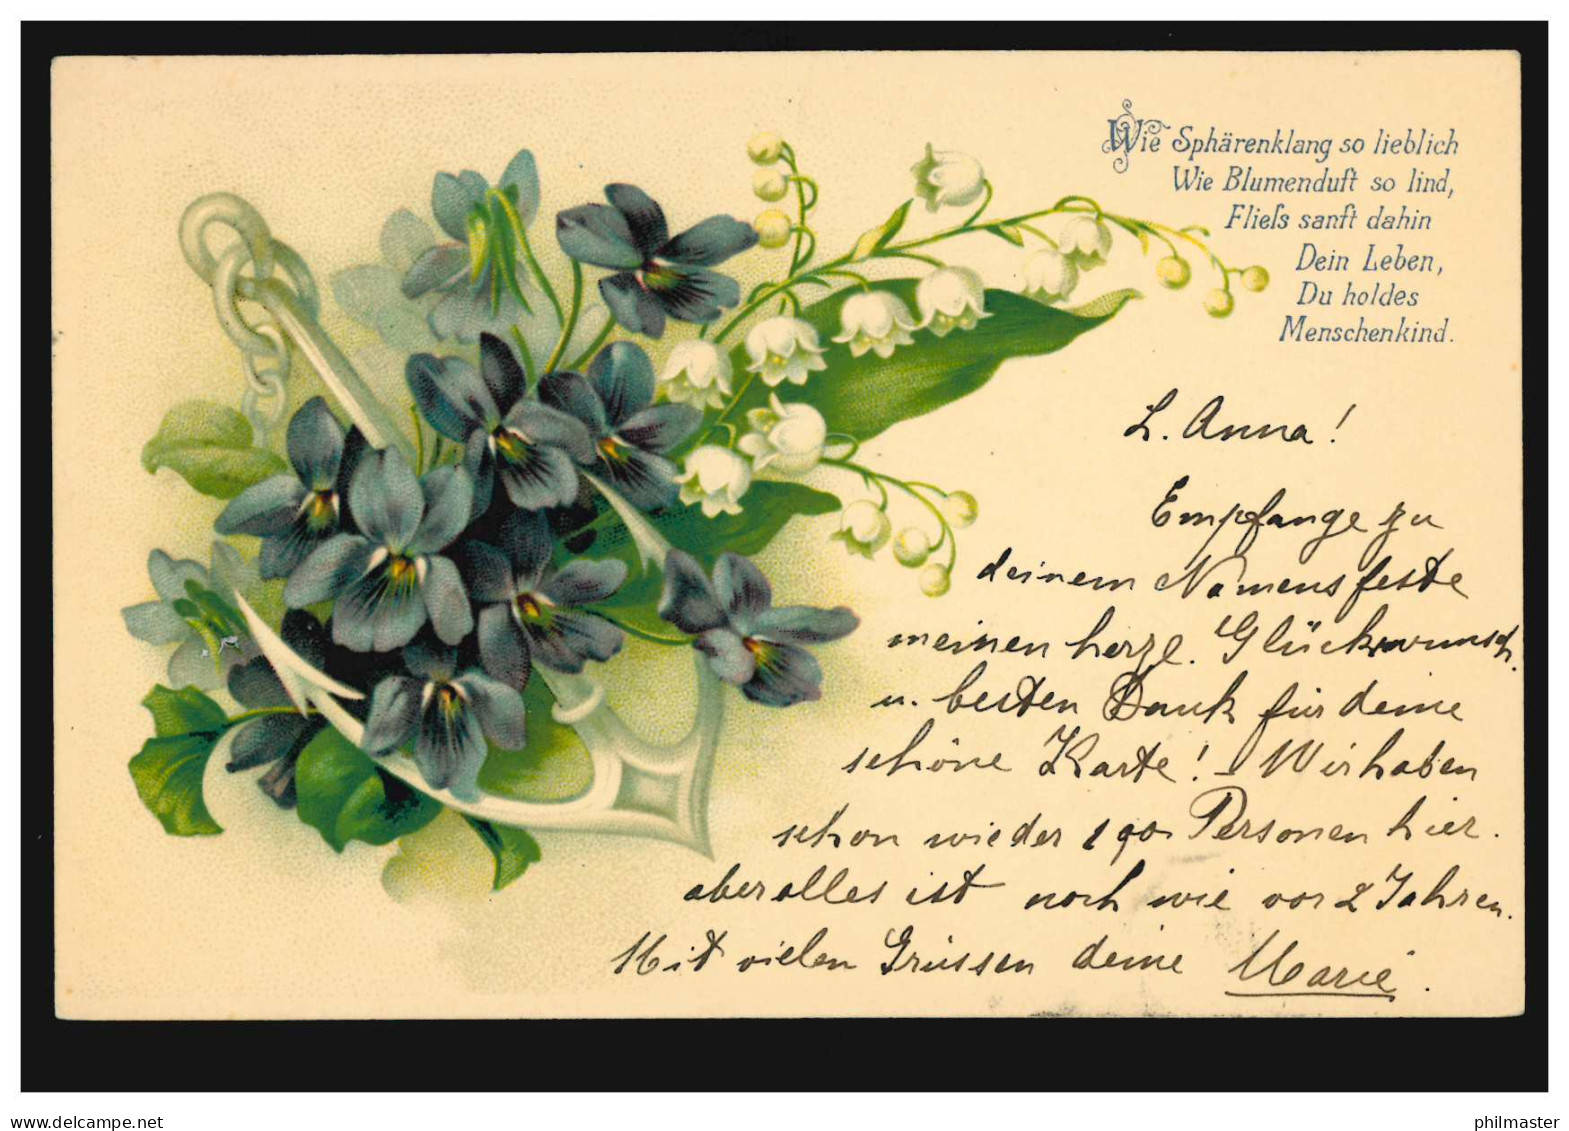 Wie Sphärenklang so lieblich
Wie Blumenduft so lind,
Fließs sanft dahin
Dein Leben,
Du holdes
Menschenkind.
L. Anna!
Empfange zu
deinem Namensfeste
meinen herzl. Glückwunsch.
u. besten Dank für deine
schöne Karte! – Wir haben
schon wieder 190 Personen hier.
aber alles ist noch wie vor 2 Jahren.
Mit vielen Grüssen deine Marie.
www.delcampe.net
philmaster